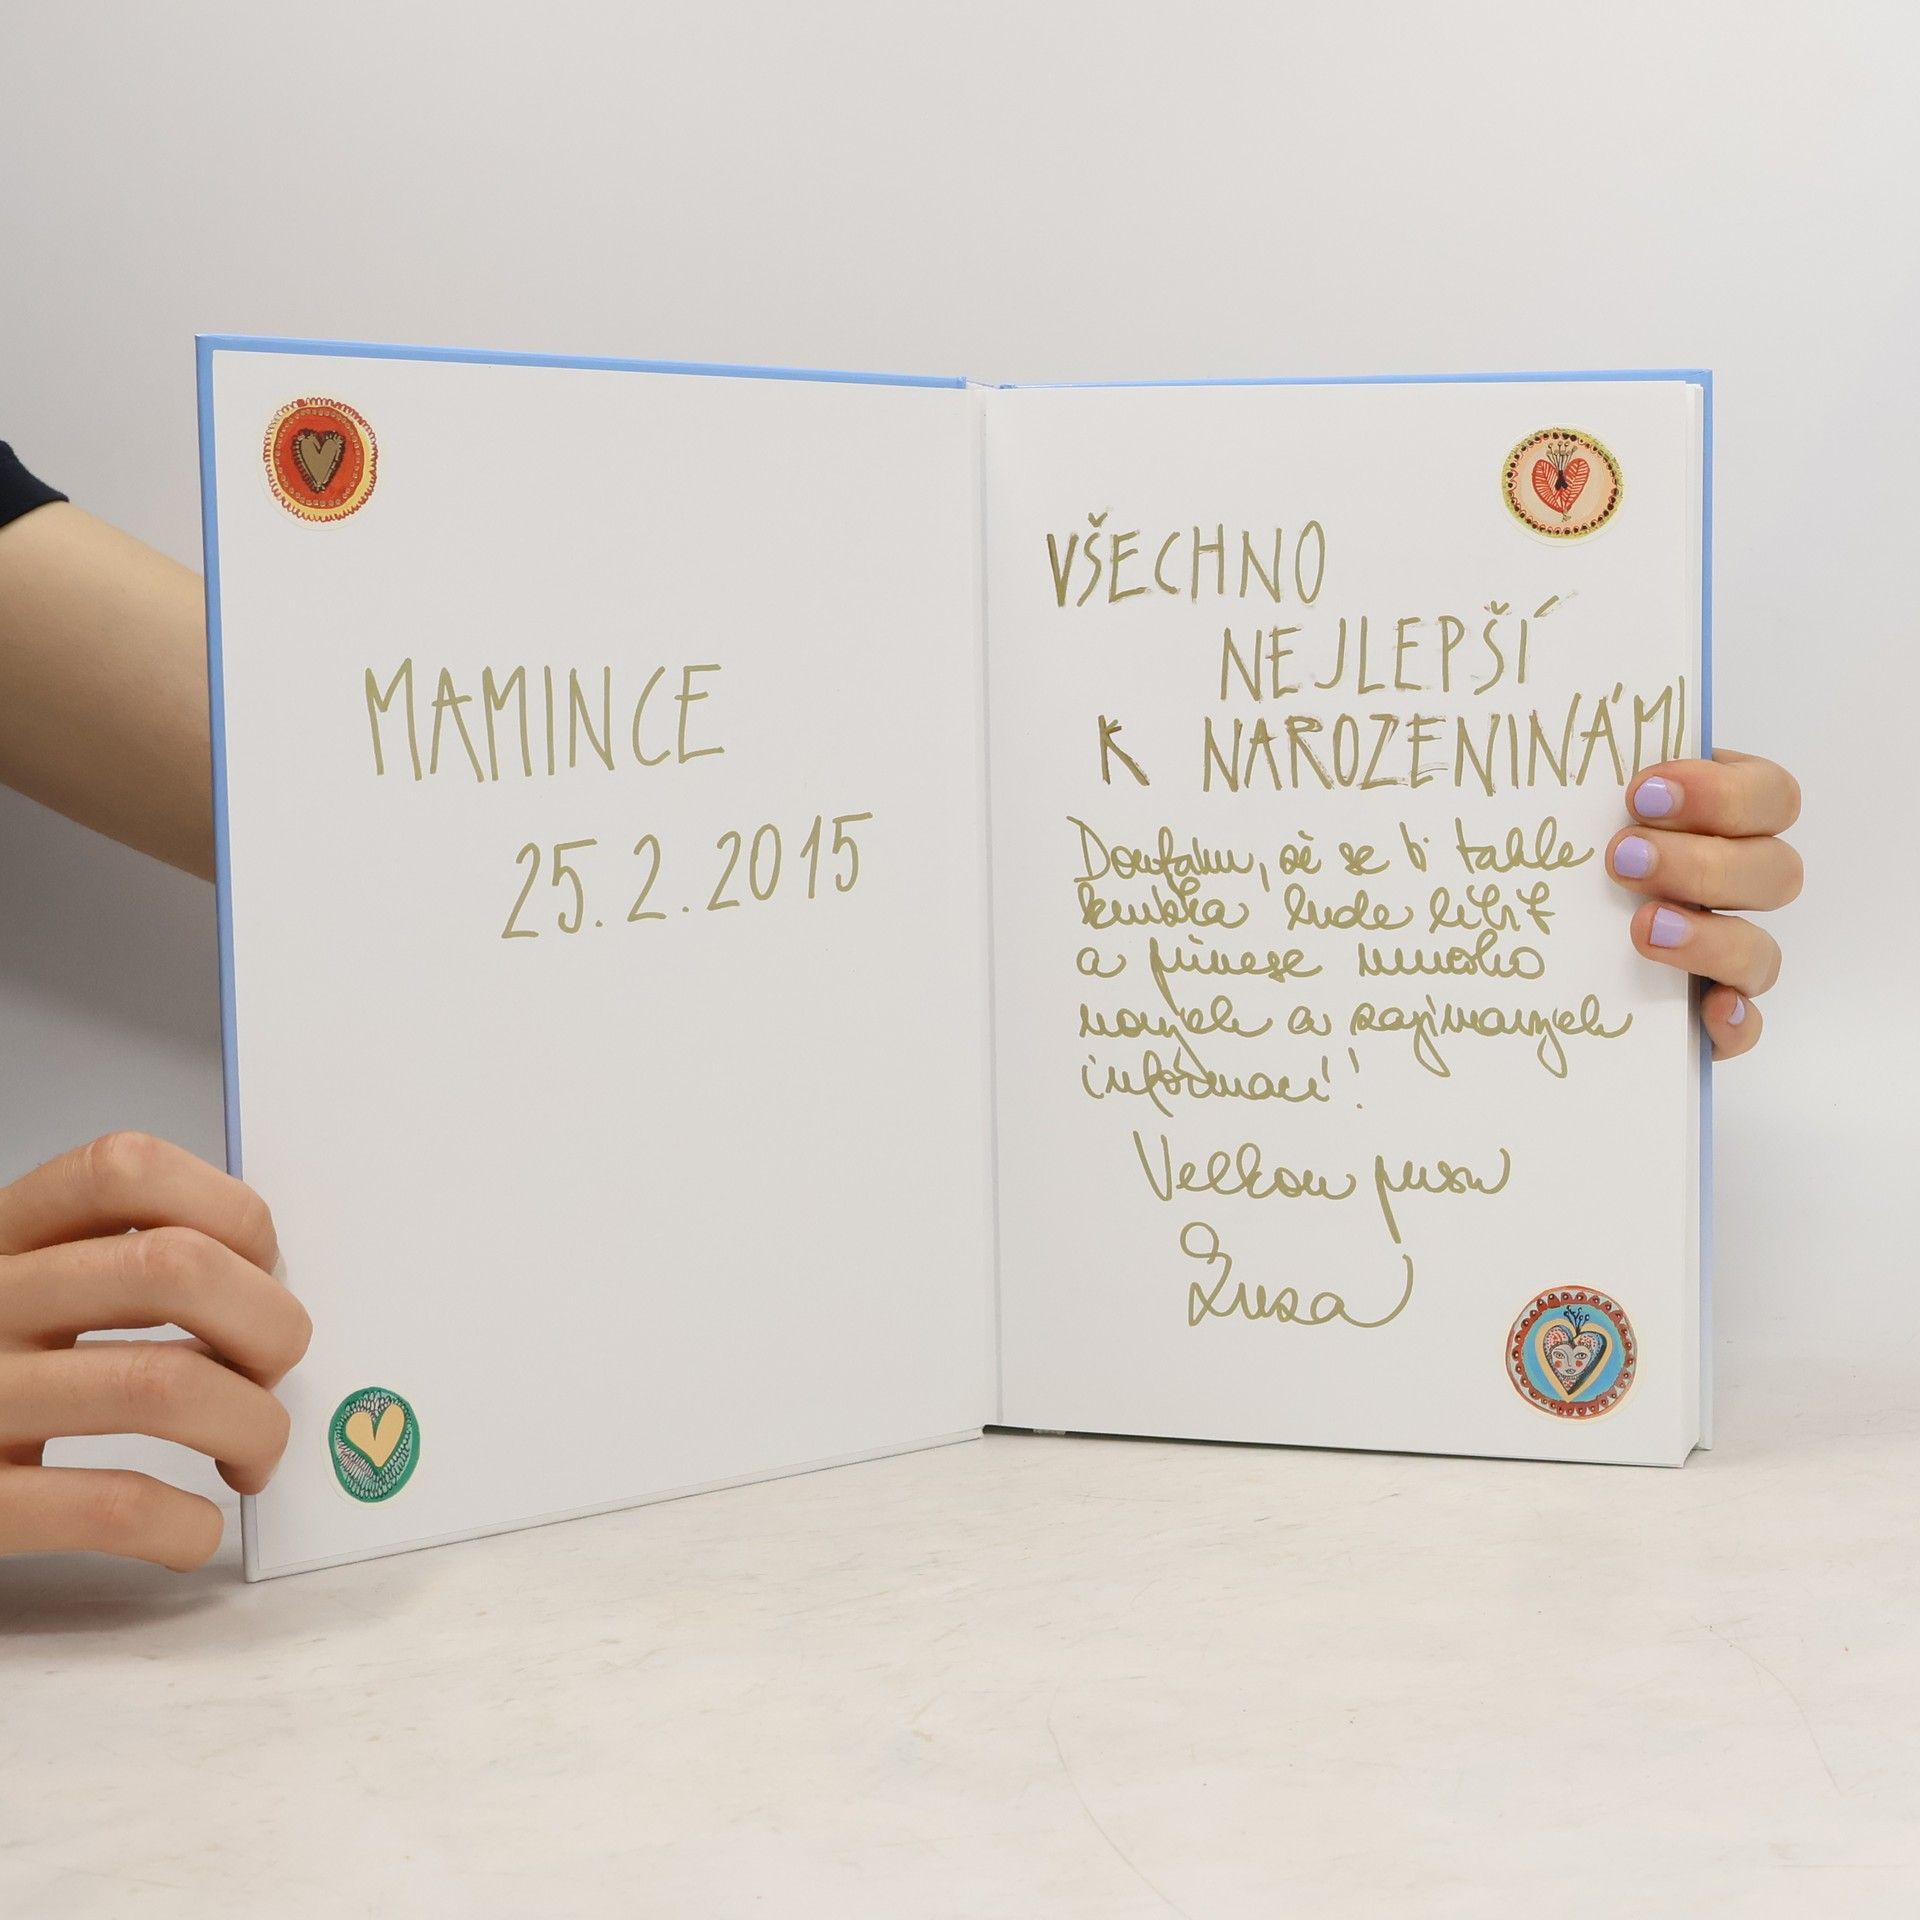 MAMINCE
25. 2. 2015
VŠECHNO
NEJLEPŠÍ
K NAROZENINÁM!
Doufám, že se ti tahle
knížka bude líbit
a přinese mnoho
nových a zajímavých
informací!
Velkou pusu
Zuza